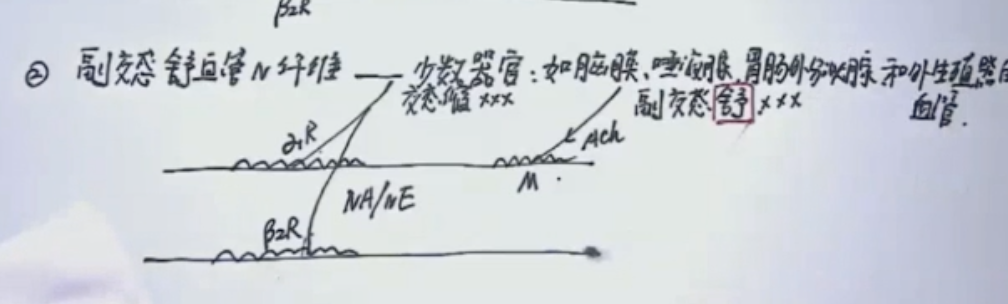 β2R
② 副交感舒血管N纤维 — 少数器官：如脑膜、唾液腺、胃肠外分泌腺和外生殖器的
交感缩××× 副交感舒××× 血管.
α1R Ach
M.
NA/NE
β2R